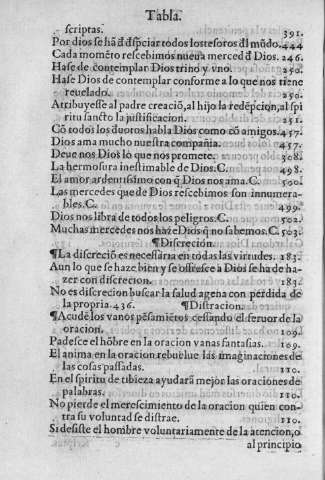 Tabla.
scriptas. 391.
Por dios se hã d̃ d̃spciar todos los tesoros dl mũdo. 444
Cada momẽto rescebimos nueua merced d̃ Dios. 246.
Hase de contemplar Dios trino y vno. 250.
Hase Dios de contemplar conforme a lo que nos tiene
reuelado. 250.
Atribuyesse al padre creaciõ, al hijo la redẽpcion, al spi
ritu sancto la justificacion. 251.
Cõ todos los duotos habla Dios como cõ amigos. 457.
Dios ama mucho nuestra compañia. 457.
Deue nos Dios lo que nos promete. 308.
La hermosura inestimable de Dios. C. 498.
El amor ardentissimo con q̃ Dios nos ama. C. 500.
Las mercedes que de Dios rescebimos son innumera-
bles. C. 499.
Dios nos libra de todos los peligros. C. 502.
Muchas mercedes nos haze Dios q̃ no sabemos. C. 503.
¶Discreciõn.
¶La discreciõ es necessaria en todas las virtudes. 183.
Aun lo que se haze bien y se offresce a Dios se ha de ha-
zer con discrecion. 183.
No es discrecion buscar la salud agena con perdida de
la propria. 436. ¶Distracion.
¶Acudẽ los vanos pẽsamiẽtos cessando el feruor de la
oracion. 109.
Padesce el hõbre en la oracion vanas fantasias. 109.
El anima en la oracion rebuelue las imaginaciones de
las cosas passadas. 110.
En el spiritu de tibieza ayudarã mejor las oraciones de
palabras. 110.
No pierde el merescimiento de la oracion quien con-
tra su voluntad se distrae. 110.
Si desiste el hombre voluntariamente de la atencion, o
al principio